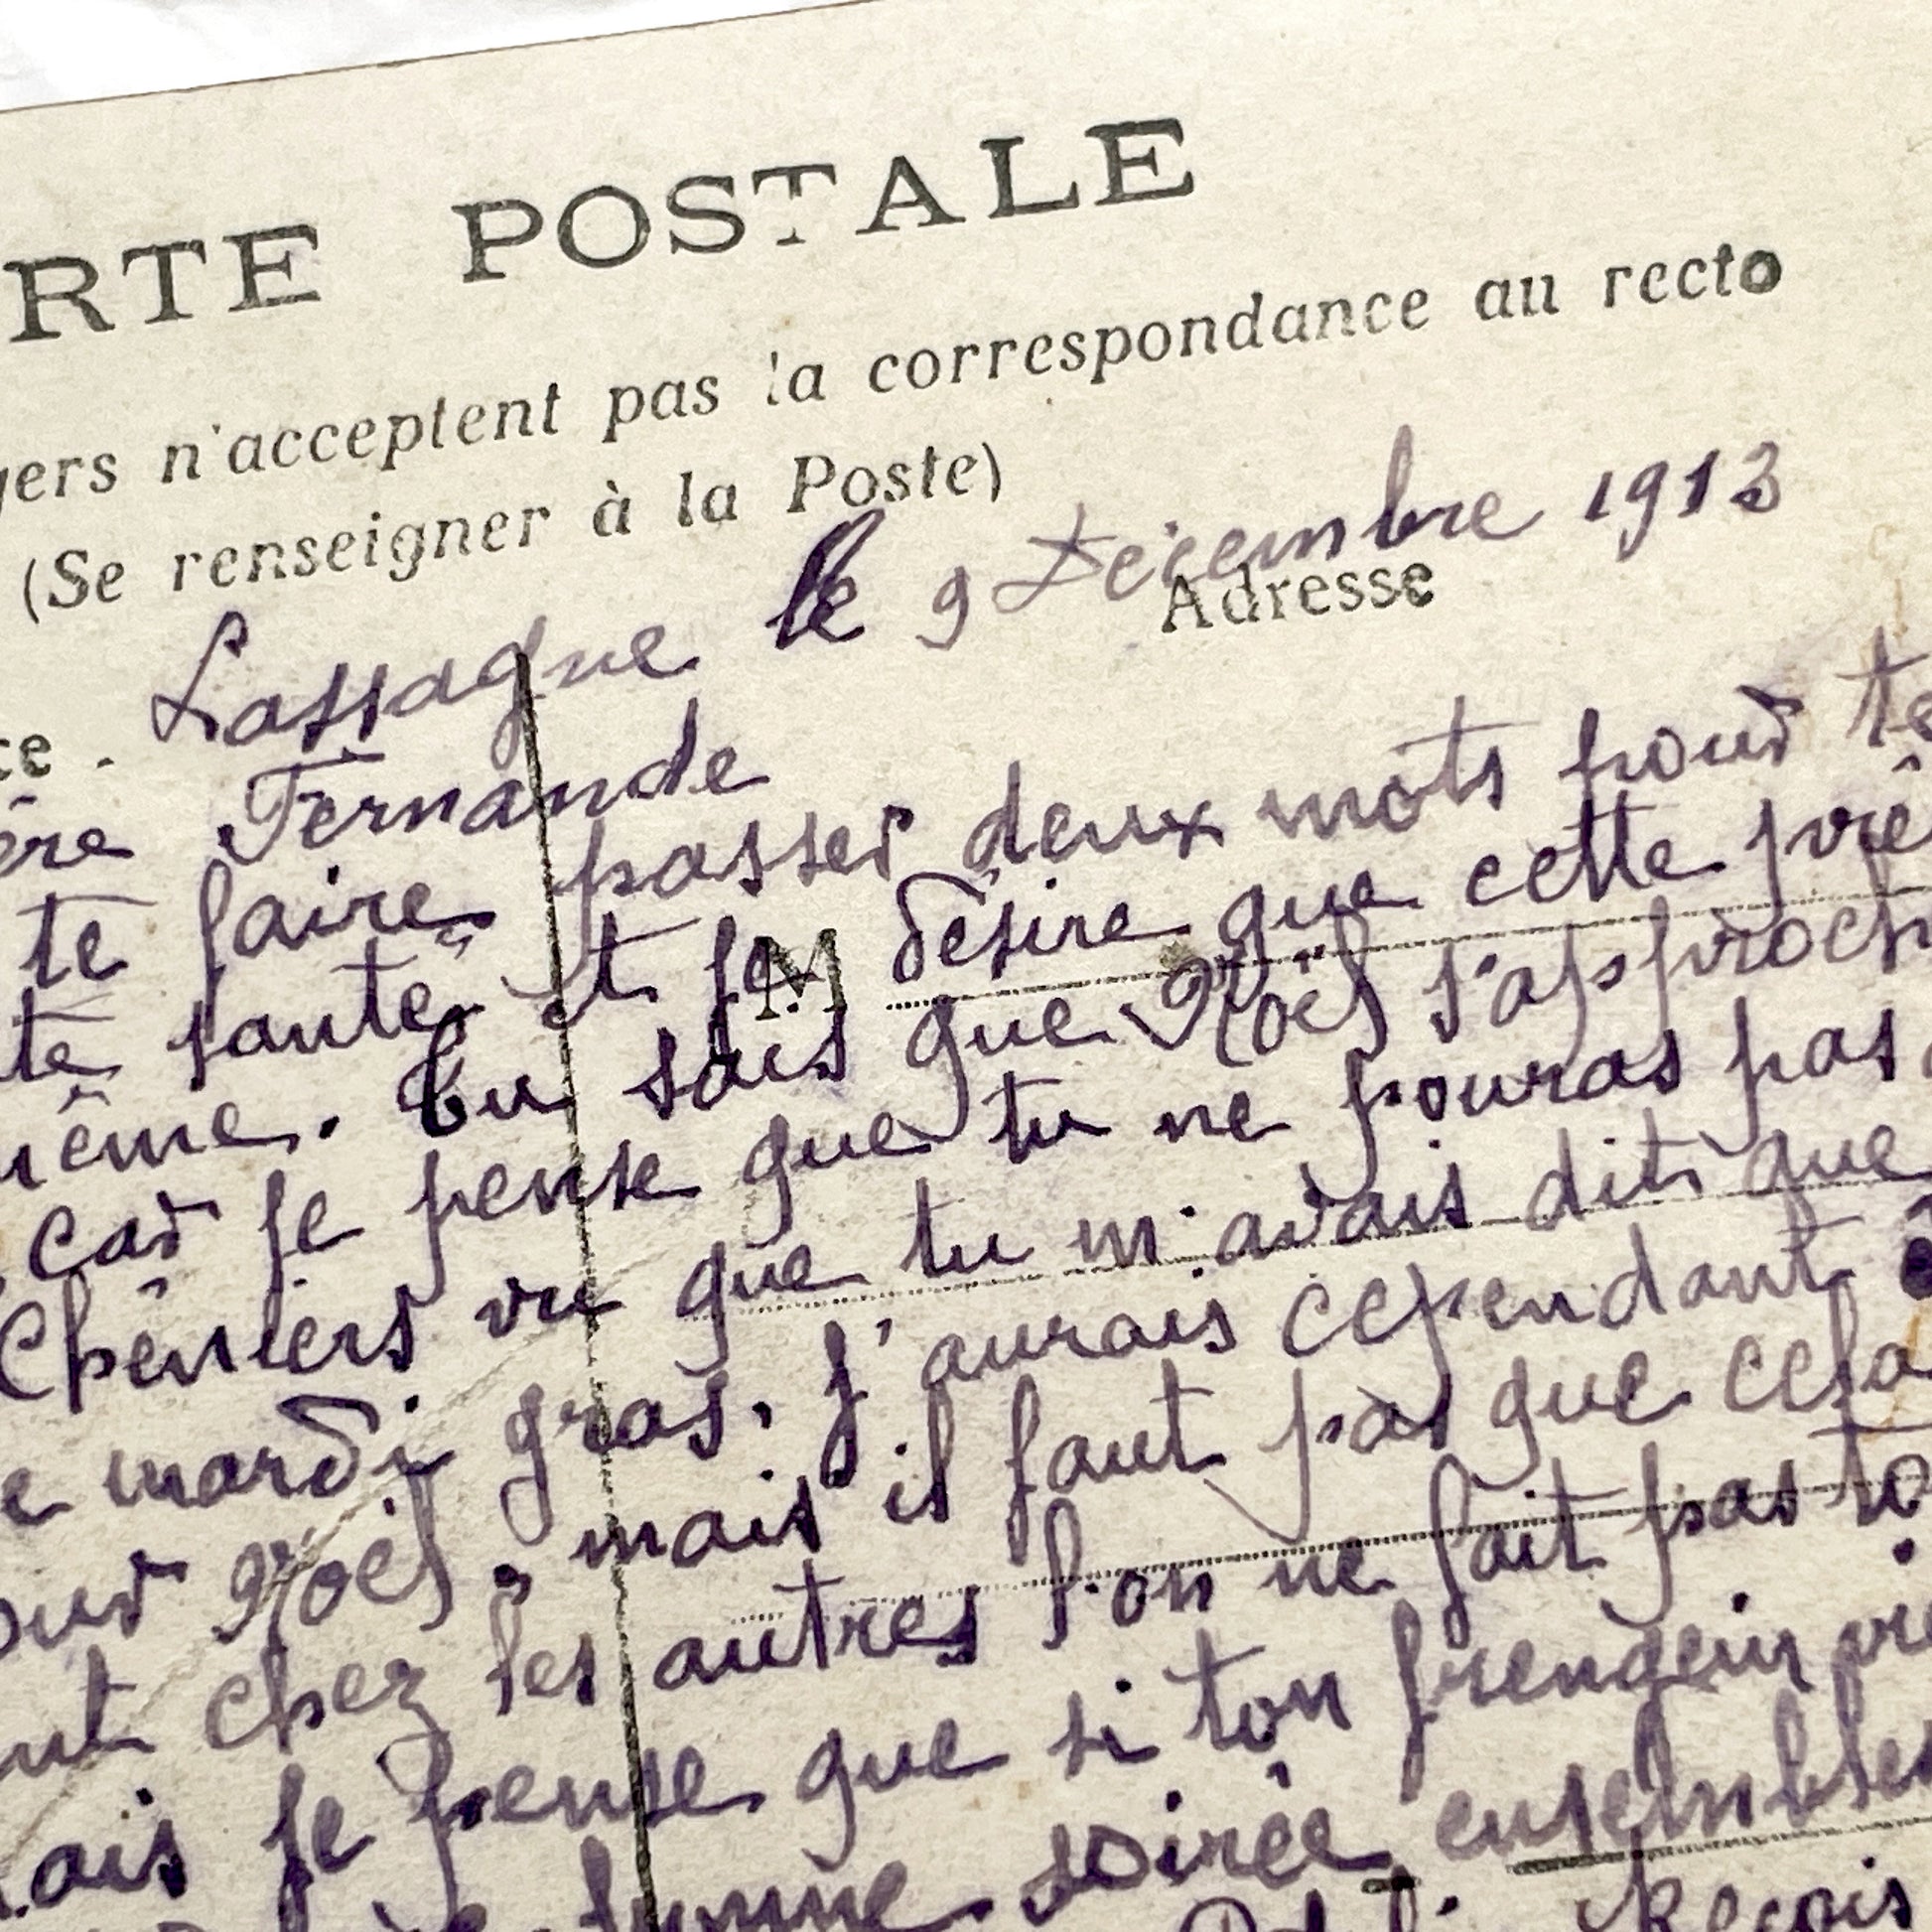 RTE POSTALE
gers n'acceptent pas la correspondance au recto
(Se renseigner à la Poste)
Lassagne le 9 Décembre 1913
Adresse
ce.
ère Fernande
te faire passer deux mots pour te
te santé et je désire que cette pré
M
même. Tu sais que Noël s'approch
car je pense que tu ne pouras pas
Chéniers vu que tu m'avais dit que
e mardi gras. j'aurais cependant
our Noël, mais il faut pas que cela
nt chez les autres l'on ne fait pas to
ais je pense que si ton frengein vie
bonne soirée ensembles
Reçois